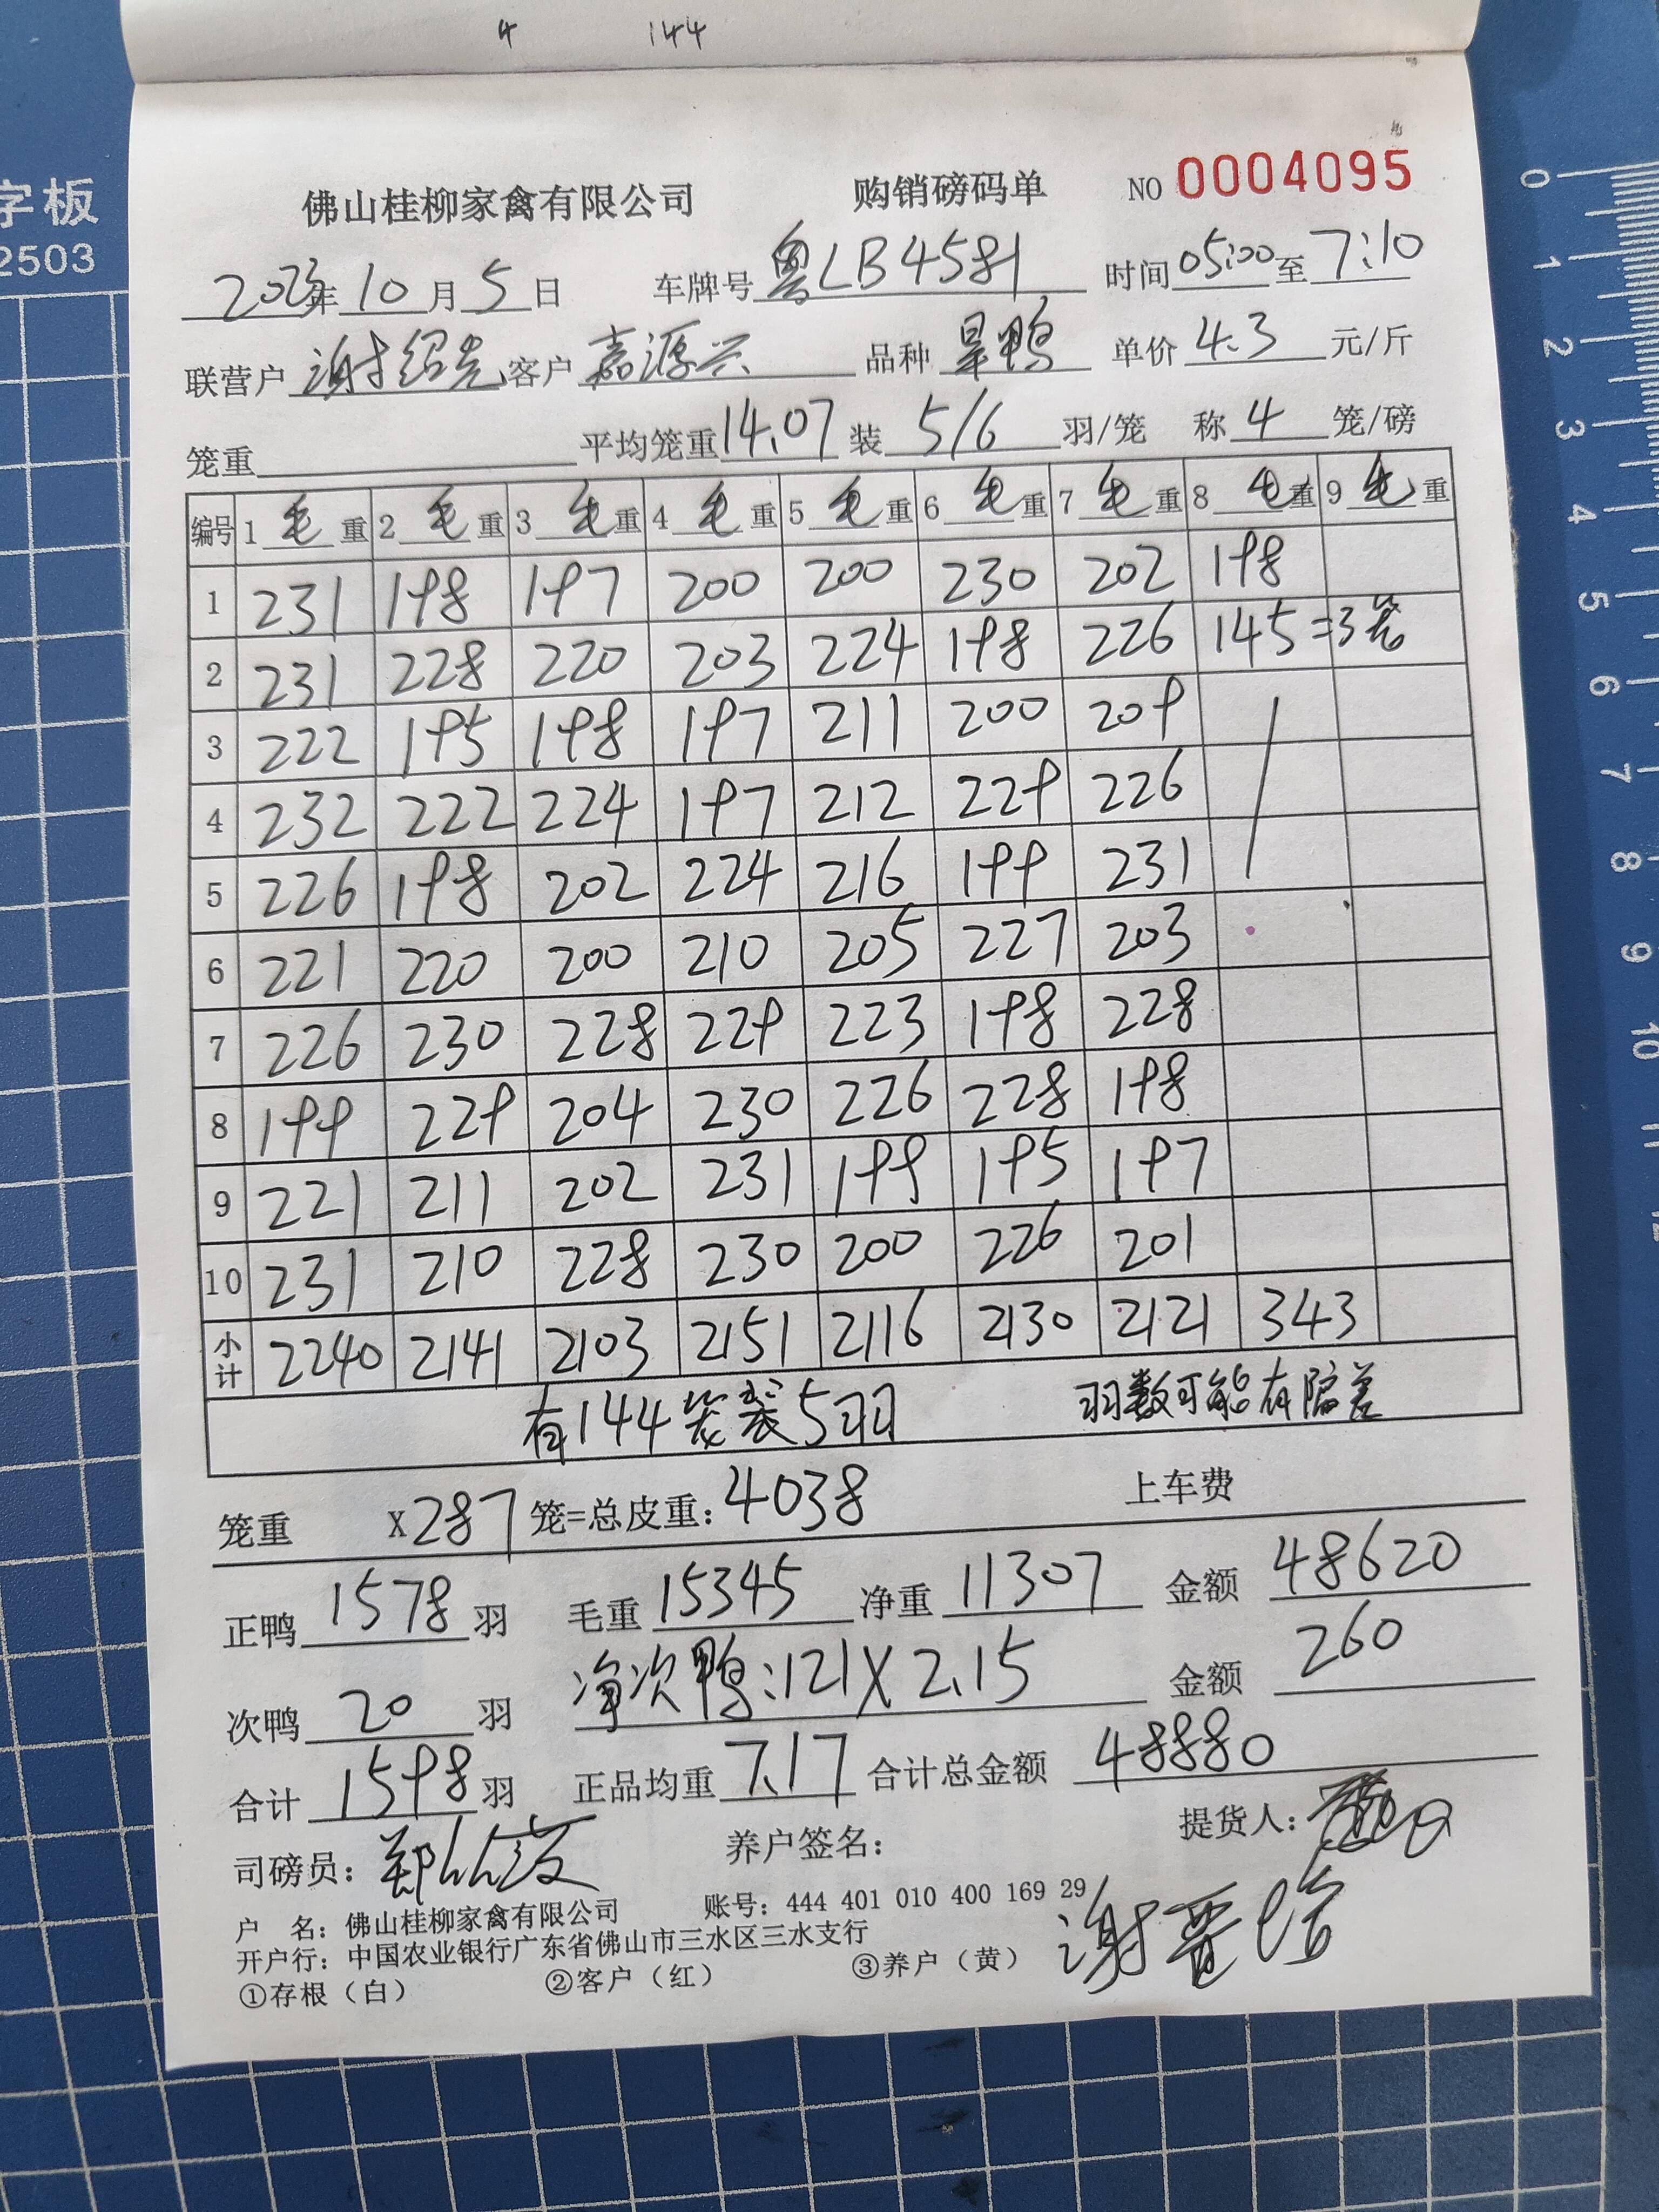 4 144
字板
2503
佛山桂柳家禽有限公司 购销磅码单 NO 0004095
2023年10月5日 车牌号 粤LB4581 时间 05:00 至 7:10
联营户 谢绍光 客户 嘉源兴 品种 旱鸭 单价 4.3 元/斤
笼重 平均笼重 14.07 装 5/6 羽/笼 称 4 笼/磅
编号 1 毛 重 2 毛 重 3 毛 重 4 毛 重 5 毛 重 6 毛 重 7 毛 重 8 毛 重 9 毛 重
1 231 198 197 200 200 230 202 198
2 231 228 220 203 224 198 226 145=3笼
3 222 195 198 197 211 200 209
4 232 222 224 197 212 229 226
5 226 198 202 224 216 199 231
6 221 220 200 210 205 227 203
7 226 230 228 229 223 198 228
8 199 229 204 230 226 228 198
9 221 211 202 231 199 195 197
10 231 210 228 230 200 226 201
小计 2240 2141 2103 2151 2116 2130 2121 343
有144笼装5羽 羽数可能有隔差
笼重 X287 笼=总皮重: 4038 上车费
正鸭 1578 羽 毛重 15345 净重 11307 金额 48620
次鸭 20 羽 净次鸭:121X2.15 金额 260
合计 1598 羽 正品均重 7.17 合计总金额 48880
司磅员: 郑 养户签名: 提货人:
谢晋
户 名: 佛山桂柳家禽有限公司 账号: 444 401 010 400 169 29
开户行: 中国农业银行广东省佛山市三水区三水支行
①存根（白） ②客户（红） ③养户（黄）
0
1
2
3
4
5
6
7
8
9
10
11
12